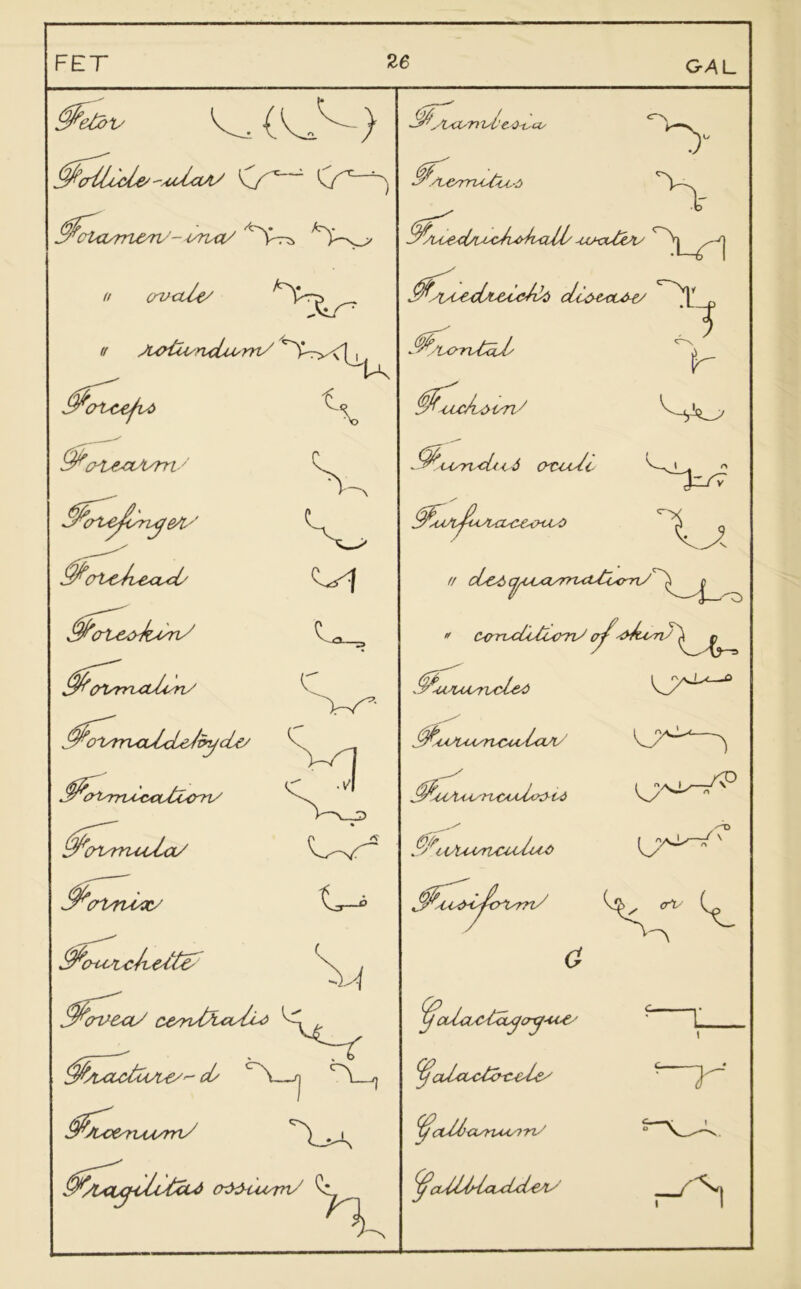 FET 26 GAL
Fetor
Follicle-ular
Foramen-ina
" ovale
" rotundum
Forceps
Forearm
Forefinger
Forehead
Foreskin
Formalin
Formaldehyde
Formication
Formula
Fornix
Fourchette
Fovea centralis
Fracture-d
Fraenum
Fragilitas ossium
Framboesia
Fremitus
Friedrichshall water
Friedreich's disease
Frontal
Fuchsin
Fundus oculi
Furfuraceous
" desquamation
" condition of skin
Furuncles
Furuncular
Furunculosis
Furunculus
Fusiform or
G
Galactagogue
Galactocele
Galbanum
Gallbladder